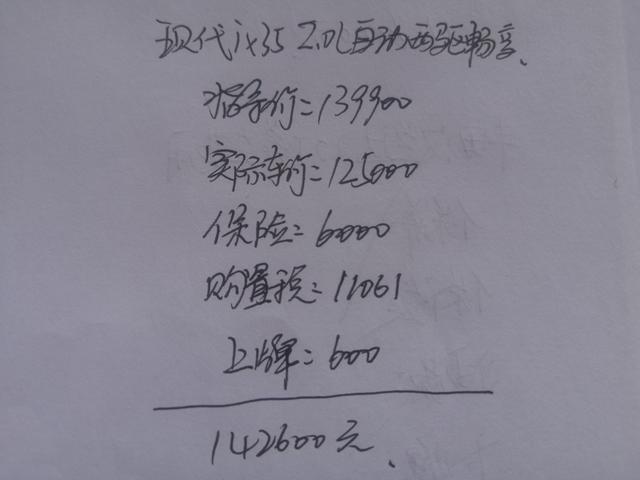 现代ix35 2.0L自动两驱畅享、
指导价=139900
实际车价=125000
保险=6000
购置税=11061
上牌=600
142600元、